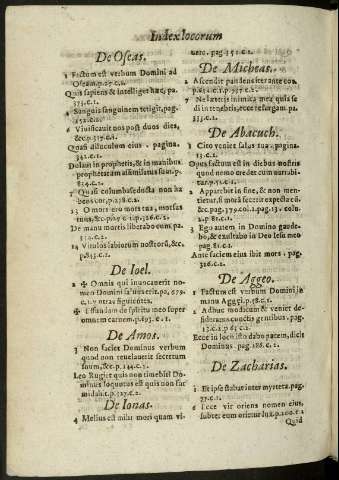 Index locorum
De Oseas.
1 Factum est verbum Domini ad
Oseam. p.27.c.1.
Quis sapiens & intelliget hæc, pa.
373.c.1.
4 Sanguis sanguinem tetigit, pag.
152.c.1.
6 Viuificauit nos post duos dies,
&c.p.317.c.1.
Quasi diluculum eius. pagina.
342.c.1.
Dolam in prophetis, & in manibus
prophetarum assimilatus sum. p.
834.c.1.
7 Quasi columba seducta non ha
bens cor, p.238.c.2.
13 O mors ero mors tua, morsus
tuus, &c.
De manu mortis liberabo eum. pa
14 Vitulos labiorum nostrorũ, &c.
p.843.c.1.
De Ioel.
2 ✠ Omnis qui inuocauerit no-
men Domini saluus erit. pa, 679.
c.1. y otras siguiẽtes.
✠ Effundam de spiritu meo super
omnem carnem. p.693. c.1.
De Amos.
3 Non faciet Dominus verbum
quod non reuelauerit secretum
suum, &c. p.144.c.2.
Leo Rugiet quis non timebit? Do-
minus loquutus est quis non
De Ionas.
4 Melius est mihi mori quam vi-
uere. pag. 351.c.1.
De Micheas.
2 Ascendit pandens iter ante eos.
7 Ne læteris inimica mea quia se
di in tenebris, ecce resurgam. pa.
353.c.1.
De Abacuch.
1 Cito veniet salus tua. pagina.
53.c.1.
Opus factum est in diebus nostris
quod nemo credet cum narrabi-
tur. p.51.c.1.
2 Apparebit in fine, & non men-
tietur, si morã fecerit expecta eũ,
&c. pag.379.col.1.pag.13. colum.
2.p.81.c.1.
3 Ego autem in Domino gaude-
bo, & exultabo in Deo Iesu meo
pag. 81.c.1.
Ante faciem eius ibit mors. pag.
326.c.1.
De Aggeo.
1 Factum est verbum Domini in
manu Aggęi.p.58.c.1.
2 Adhuc modicum & veniet de-
sideratus cunctis gentibus. pag.
Ecce in loco isto dabo pacem, dicit
Dominus. pag.
De Zacharias.
1 Et ipse stabat inter myrteta. pag.
77.c.1.
6 Ecce vir oriens nomen eius,
subter eum orietur lux. p.200.c.1
Quid